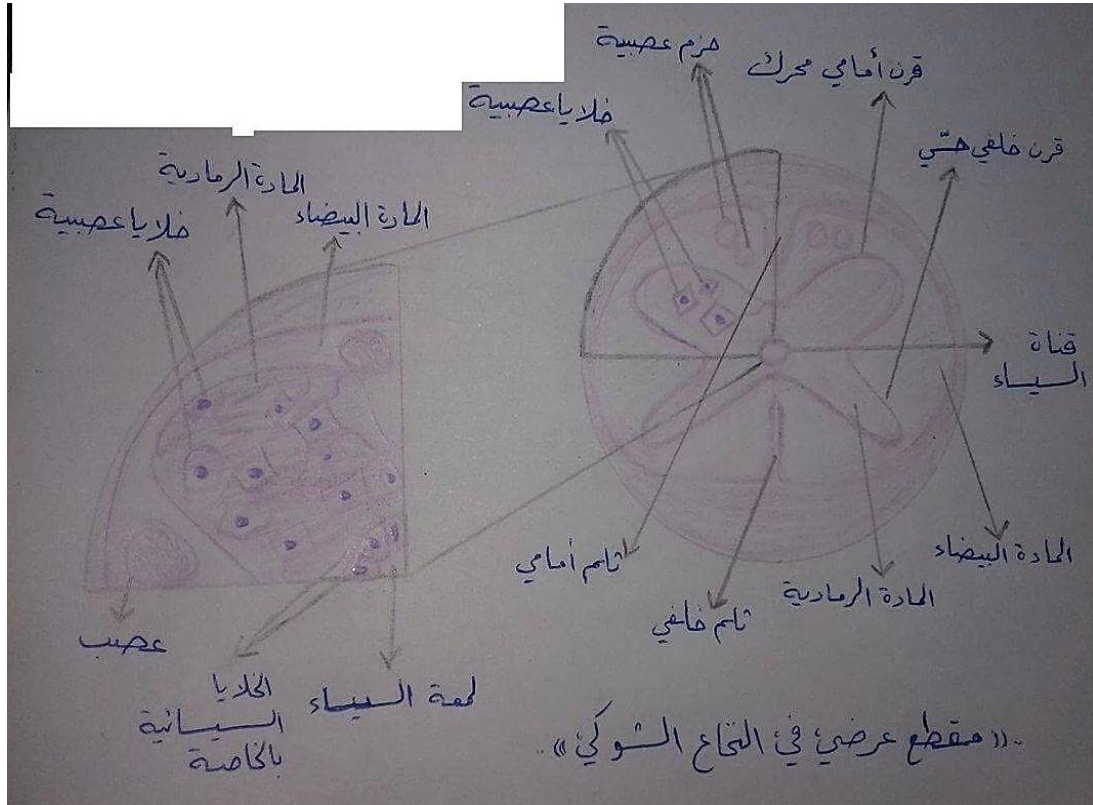 حزم عصبية
قرن أمامي محرك
خلايا عصبية
قرن خلفي حسّي
المادة الرمادية
المادة البيضاء
خلايا عصبية
قناة
السيساء
ثلم أمامي
المادة البيضاء
المادة الرمادية
ثلم خلفي
عصب
الخلايا
السيسائية
بالخاصة
لمعة السيساء
«مقطع عرضي في النخاع الشوكي»